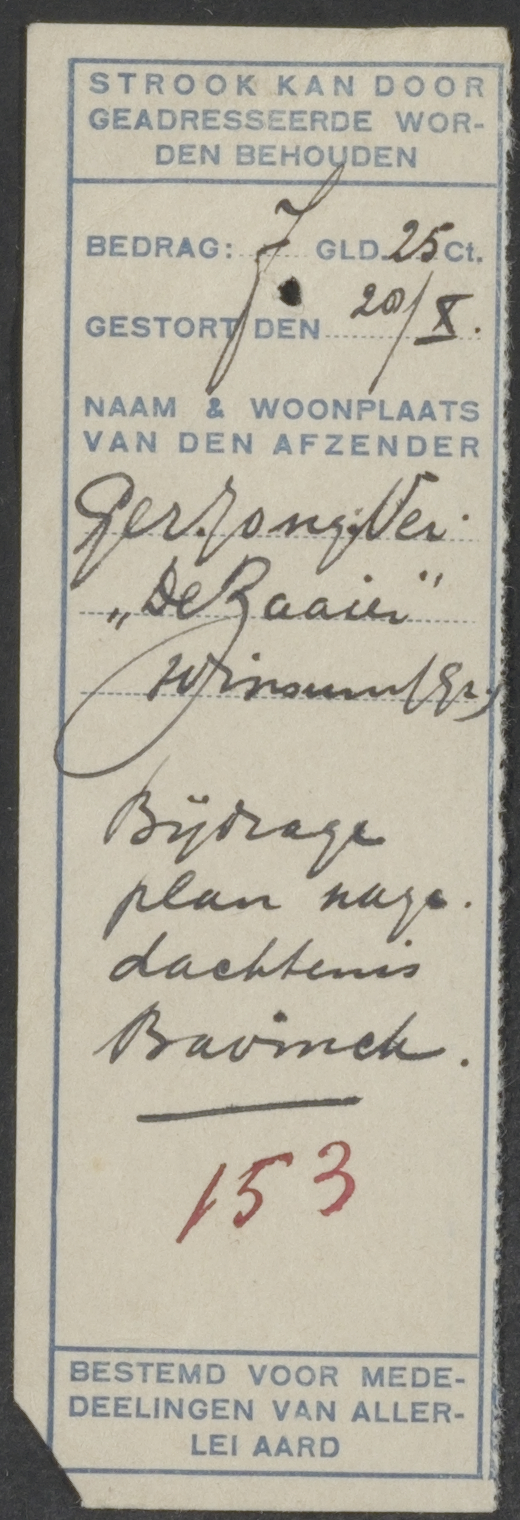 STROOK KAN DOOR
GEADRESSEERDE WOR-
DEN BEHOUDEN
BEDRAG: 7 GLD. 25 Ct.
GESTORT DEN 20/X.
NAAM & WOONPLAATS
VAN DEN AFZENDER
Ger. Jong. Ver.
„De Zaaier"
Winsum (Gr.)
Bijdrage
plan nage-
dachtenis
Bavinck.
153
BESTEMD VOOR MEDE-
DEELINGEN VAN ALLER-
LEI AARD